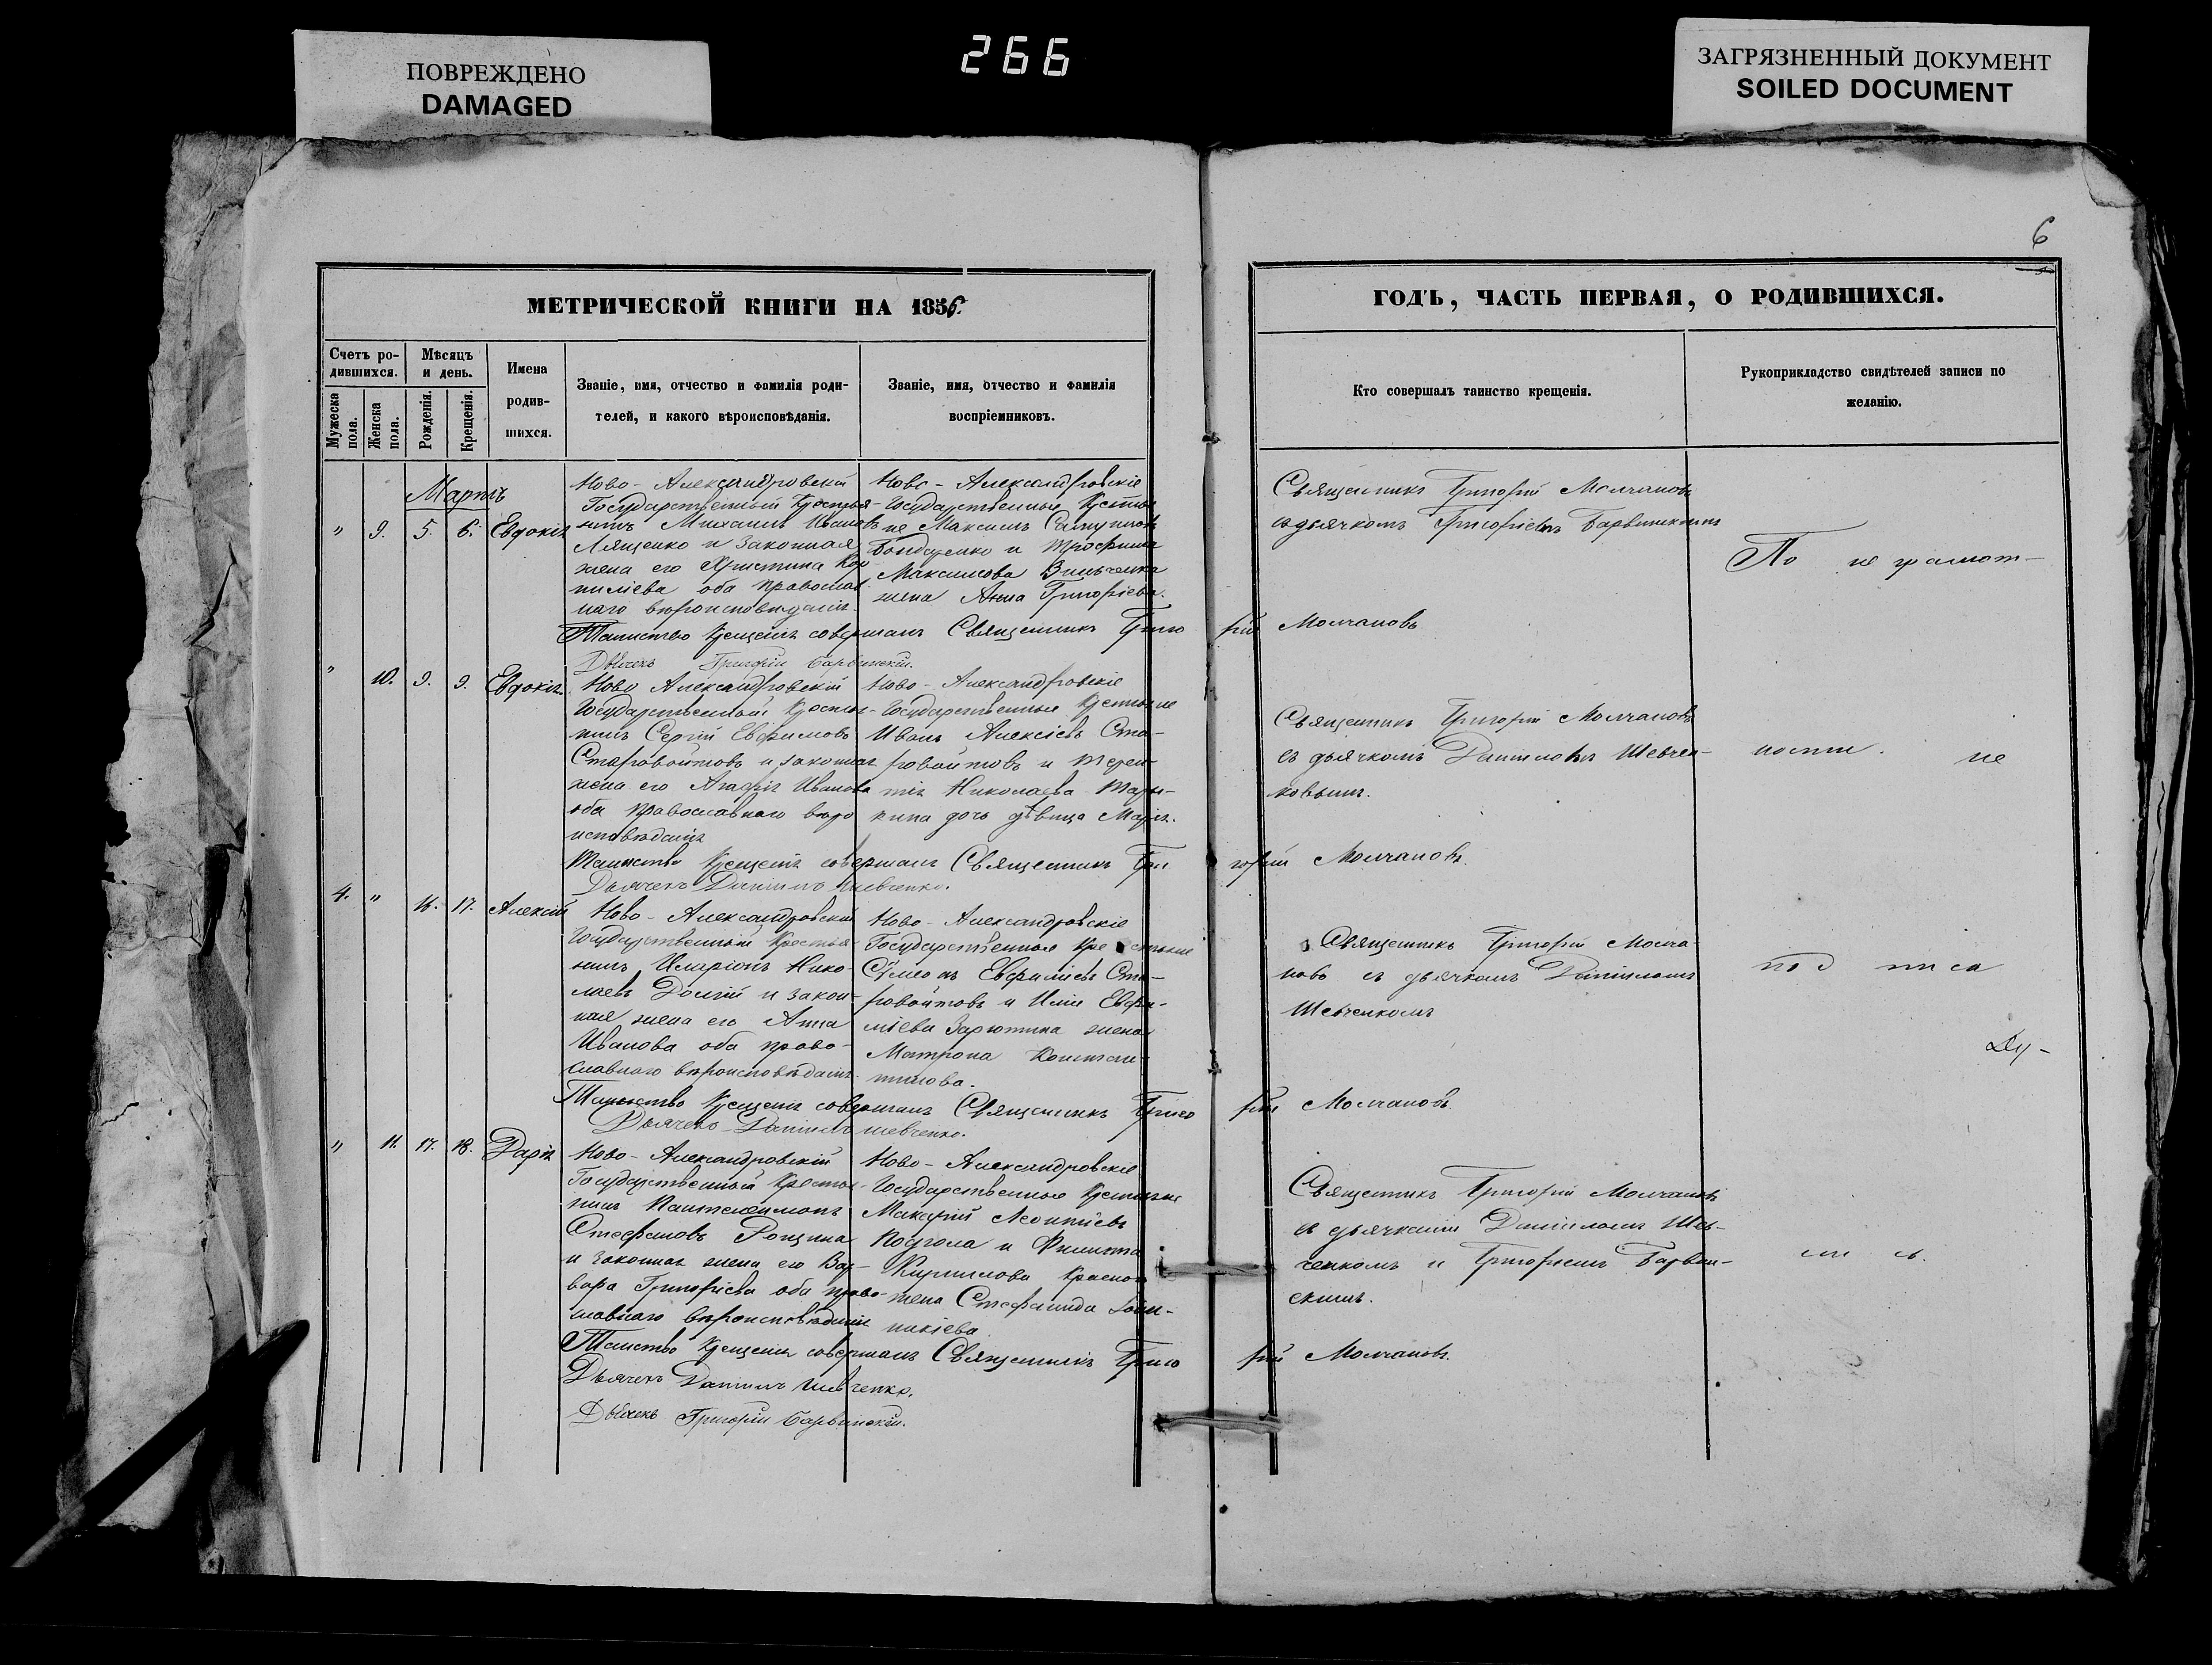 ПОВРЕЖДЕНО
DAMAGED
266
ЗАГРЯЗНЕННЫЙ ДОКУМЕНТ
SOILED DOCUMENT
6
МЕТРИЧЕСКОЙ КНИГИ НА 1856.
Счетъ ро-
дившихся.
Мужеска
пола.
Женска
пола.
Мѣсяцъ
и день.
Рожденія.
Крещенія.
Имена
родив-
шихся.
Званіе, имя, отчество и фамилія роди-
телей, и какого вѣроисповѣданія.
Званіе, имя, отчество и фамилія
воспріемниковъ.
ГОДЪ, ЧАСТЬ ПЕРВАЯ, О РОДИВШИХСЯ.
Кто совершалъ таинство крещенія.
Рукоприкладство свидѣтелей записи по
желанію.
Мартъ
" 9. 5. 6. Евдокія
Ново-Александровскій
Государственный Крестья-
нинъ Михаилъ Ивановъ
Лященко и законная
жена его Христина Кор-
ниліева оба православ-
наго вѣроисповѣданія.
Ново-Александровскіе
Государственные Крестья-
не Максимъ
Бондаренко и
Максимова
жена Анна Григоріева.
Священникъ Григорій Молчановъ
съ дьячкомъ Григоріемъ Барвинскимъ
По не грамот-
Таинство Крещенія совершалъ Священникъ Григо рій Молчановъ
Дьячекъ Григорій Барвинскій.
" 10. 9. 9. Евдокія.
Ново Александровскій
Государственный Крестья-
нинъ Сергій Евфимовъ
Старовойтовъ и законная
жена его Агафія Иванова
оба православнаго вѣро
исповѣданія
Ново-Александровскіе
Государственные Крестьяне
Иванъ Алексіевъ Ста-
ровойтовъ и Терен-
тія Николаева
дочь дѣвица Марія.
Священникъ Григорій Молчановъ
съ дьячкомъ Даніиломъ Шевчен-
ковымъ.
ности. не
Таинство Крещенія совершалъ Священникъ Гри горій Молчановъ.
Дьячекъ Даніилъ Шевченко.
4. " 16. 17. Алексій
Ново-Александровскій
Государственный Крестья-
нинъ Иларіонъ Нико-
лаевъ Долгій и закон-
ная жена его Анна
Иванова оба право-
славнаго вѣроисповѣданія.
Ново-Александровскіе
Государственные Крестьяне
Сѵмеонъ Евфиміевъ Ста-
ровойтовъ и Иліи Евфи-
міева жена
Матрона Констан-
тинова.
Священникъ Григорій Молча-
новъ съ дьячкомъ Даніиломъ
Шевченкомъ
под писа
Ду-
Таинство Крещенія совершалъ Священникъ Григо рій Молчановъ.
Дьячекъ Даніилъ Шевченко.
" 11. 17. 18. Дарія
Ново-Александровскій
Государственный Крестья-
нинъ Пантелеимонъ
Стефановъ Рощина
и законная жена его Вар-
вара Григоріева оба право-
славнаго вѣроисповѣданія
Ново-Александровскіе
Государственные Крестьяне
Макарій Леонтіевъ
и Филиппа
Кириллова
жена Стефанида Іоан-
никіева
Священникъ Григорій Молчановъ
съ дьячками Даніиломъ Шев-
ченкомъ и Григоріемъ Барвин-
скимъ.
ли съ.
Таинство Крещенія совершалъ Священникъ Григо рій Молчановъ.
Дьячекъ Даніилъ Шевченко.
Дьячекъ Григорій Барвинскій.